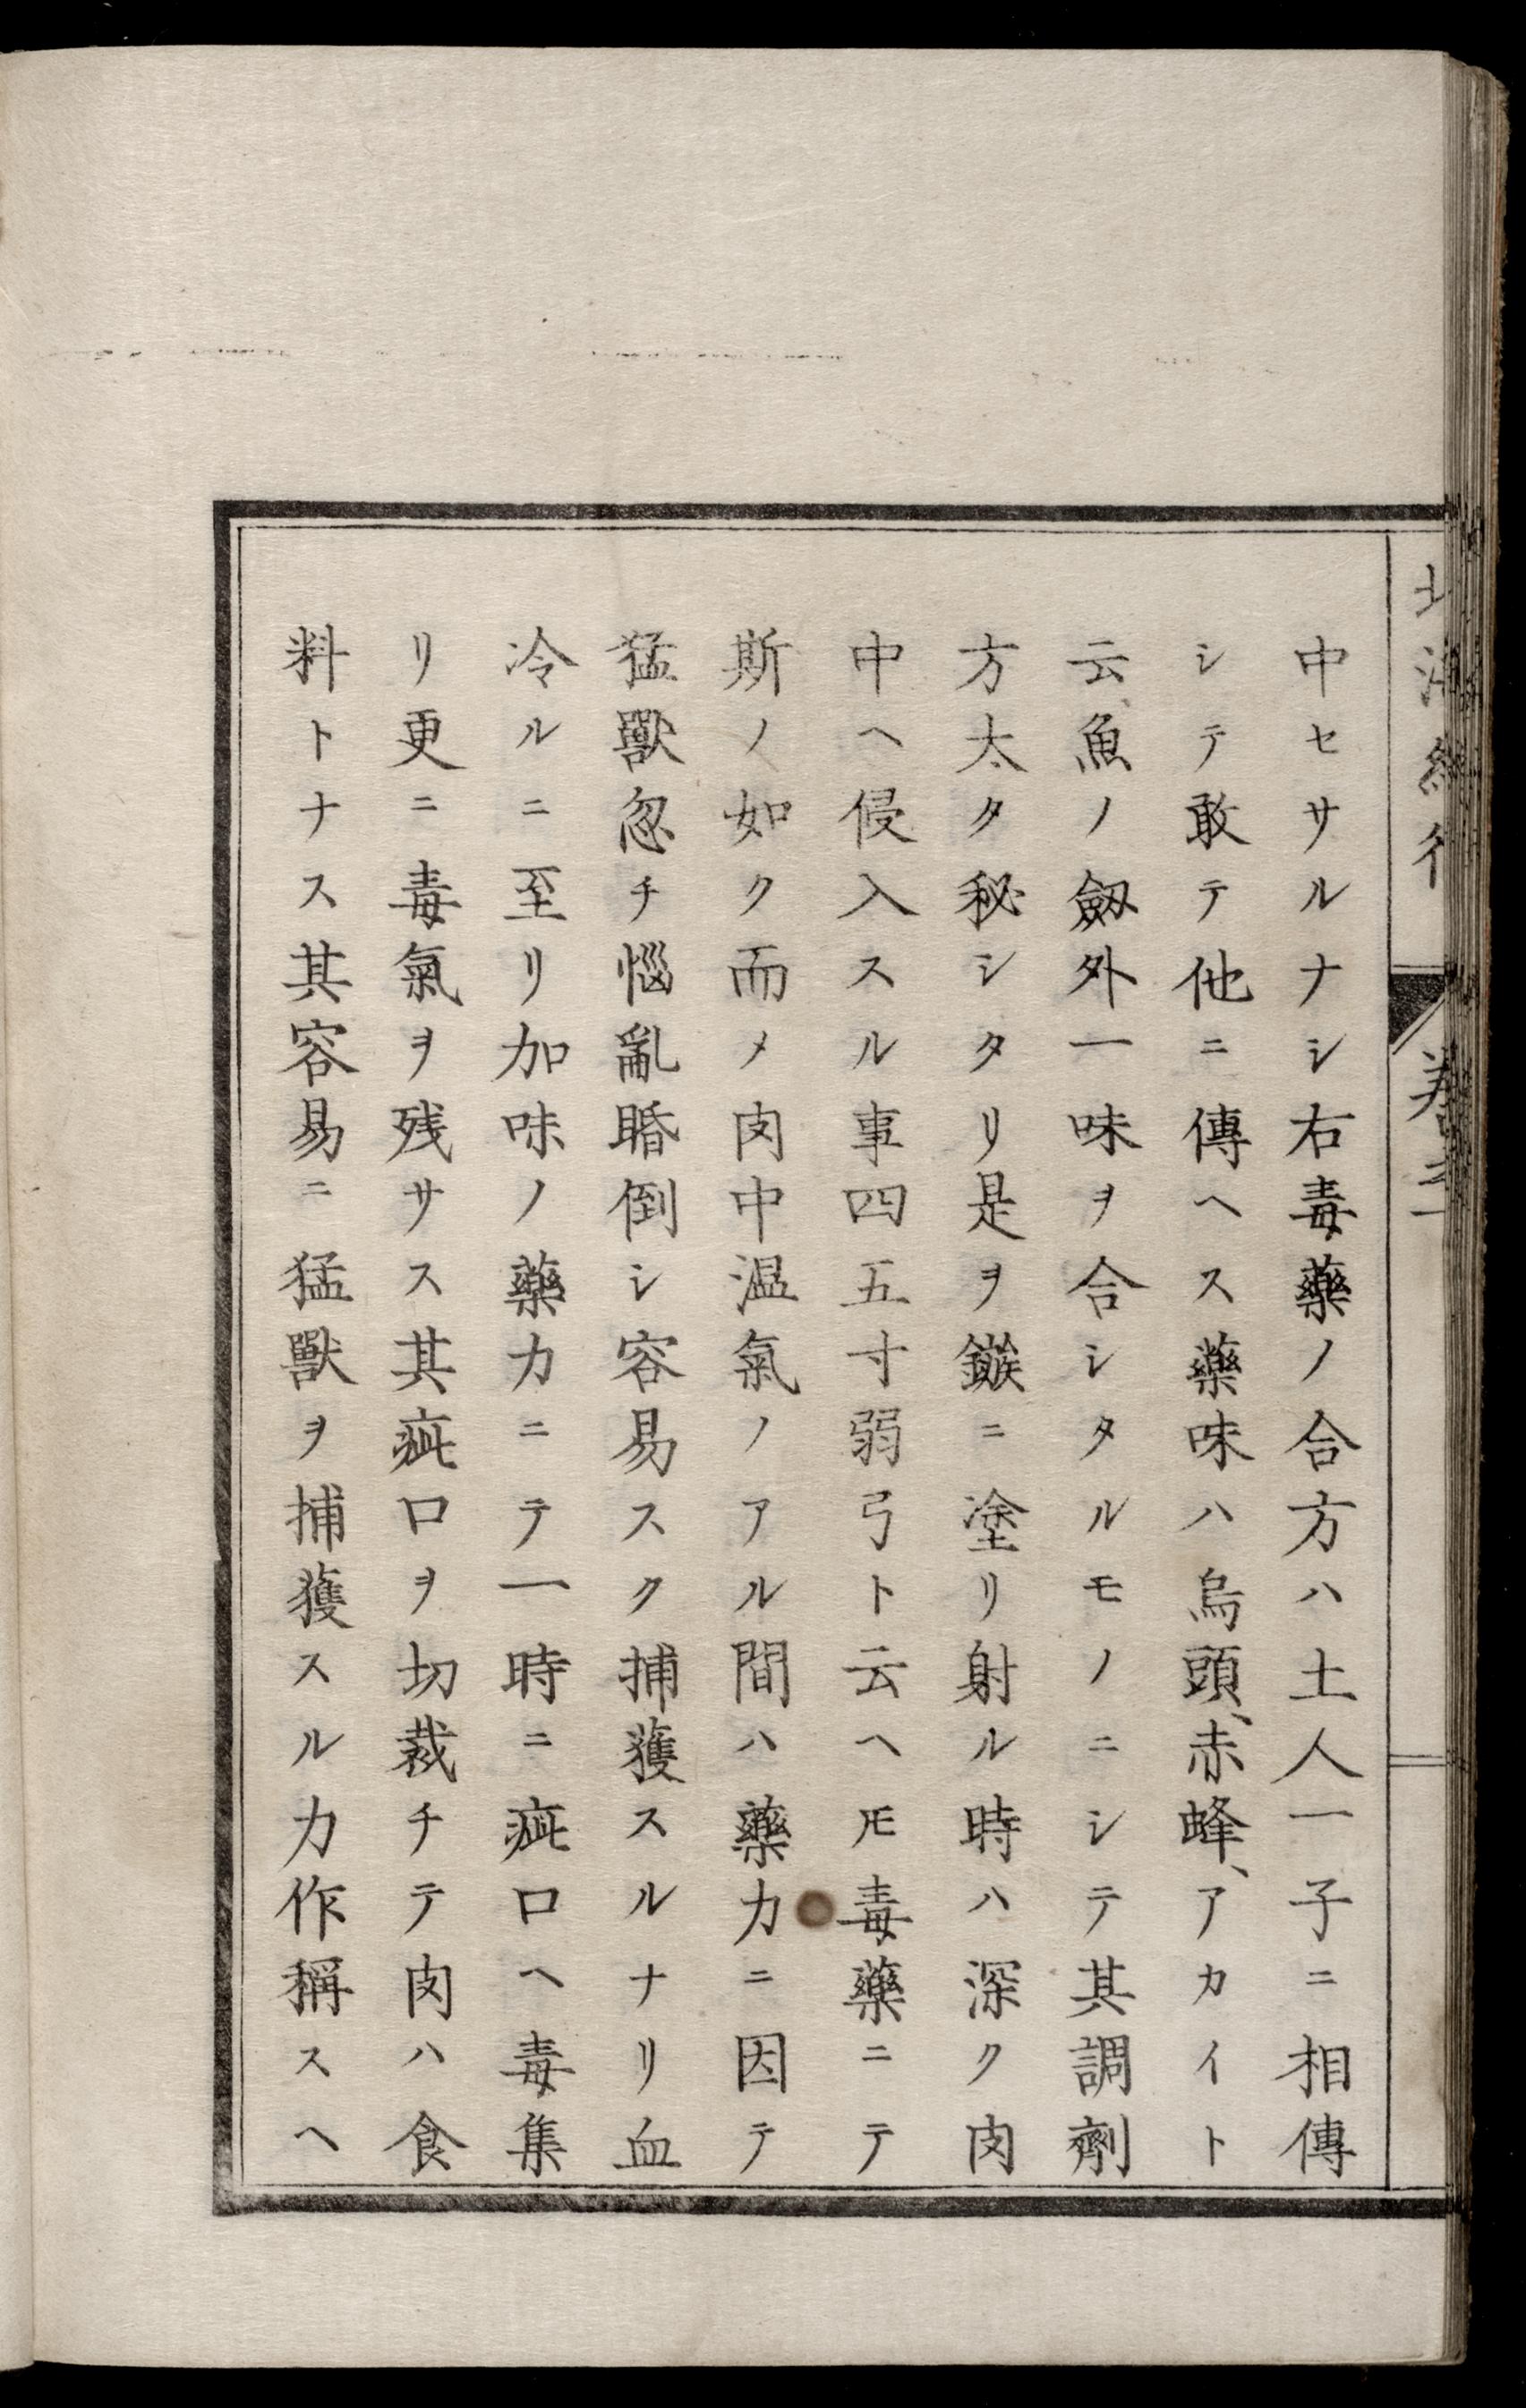 中セサルナシ右毒藥ノ合方ハ土人一子ニ相傳
シテ敢テ他ニ傳ヘス藥味ハ烏頭、赤蜂、アカイト
云、魚ノ劔外一味ヲ合シタルモノニシテ其調劑
方太タ秘シタリ是ヲ鏃ニ塗リ射ル時ハ深ク肉
中ヘ侵入スル事四五寸弱弓ト云ヘ𪜈毒藥ニテ
斯ノ如ク而メ肉中温氣ノアル間ハ藥力ニ因テ
猛獸忽チ惱亂昏倒シ容易スク捕獲スルナリ血
冷ルニ至リ加味ノ藥力ニテ一時ニ疵口ヘ毒集
リ更ニ毒氣ヲ残サス其疵口ヲ切裁チテ肉ハ食
料トナス其容易ニ猛獸ヲ捕獲スル力作稱スヘ